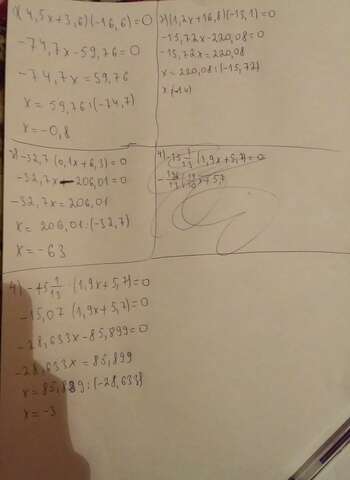 1) (4,5x+3,6)(-16,6)=0
-74,7x-59,76=0
-74,7x=59,76
x=59,76:(-74,7)
x=-0,8
2) (1,2x+16,8)(-13,1)=0
-15,72x-220,08=0
-15,72x=220,08
x=220,08:(-15,72)
3) -32,7(0,1x+6,3)=0
-32,7x-206,01=0
-32,7x=206,01
x=206,01:(-32,7)
x=-63
4) -15 1/13 (1,9x+5,7)=0
4) -15 1/13 (1,9x+5,7)=0
-15,07(1,9x+5,7)=0
-28,633x-85,899=0
-28,633x=85,899
x=85,899:(-28,633)
x=-3